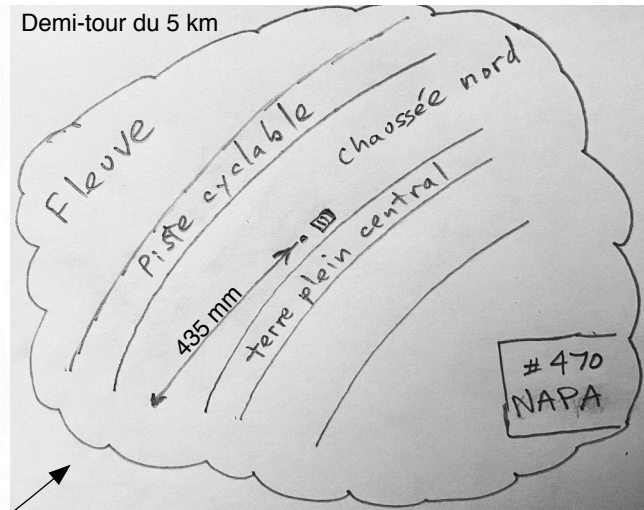 Demi-tour du 5 km
Fleuve
Piste cyclable
chaussée nord
435 mm
terre plein central
# 470
NAPA